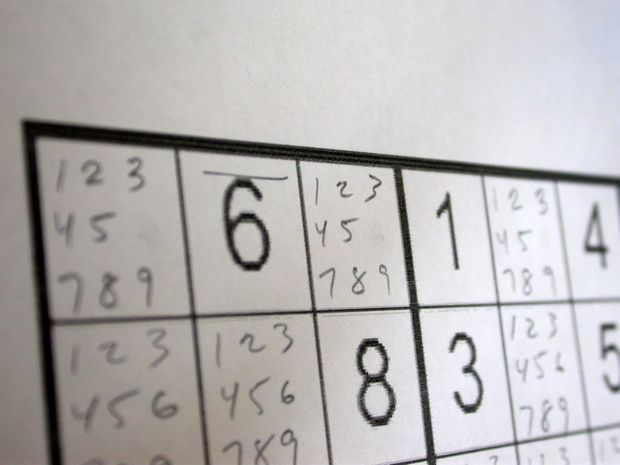 1 2 3
4 5
7 8 9
6
1 2 3
4 5
7 8 9
1
1 2 3
4 5
7 8 9
4
1 2 3
4 5 6
1 2 3
4 5 6
7 8 9
8
3
1 2 3
4 5 6
7 8 9
5